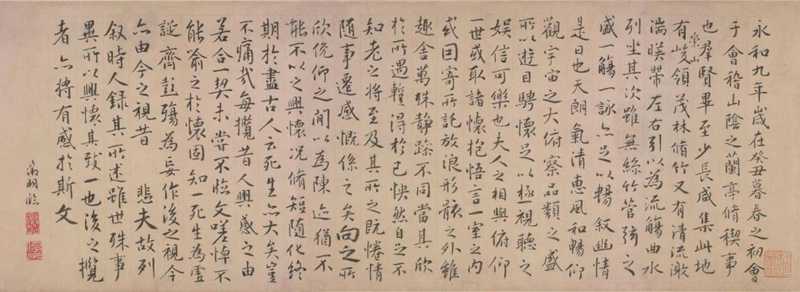 永和九年歲在癸丑暮春之初會
于會稽山陰之蘭亭脩禊事
也羣賢畢至少長咸集此地
有崇山峻領茂林脩竹又有清流激
湍暎帶左右引以為流觴曲水
列坐其次雖無絲竹管弦之
盛一觴一詠亦足以暢敘幽情
是日也天朗氣清惠風和暢仰
觀宇宙之大俯察品類之盛
所以遊目騁懷足以極視聽之
娛信可樂也夫人之相與俯仰
一世或取諸懷抱悟言一室之內
或因寄所託放浪形骸之外雖
趣舍萬殊靜躁不同當其欣
於所遇暫得於己怏然自足不
知老之將至及其所之既惓情
隨事遷感慨係之矣向之所
欣俛仰之閒以為陳迹猶不
能不以之興懷況脩短隨化終
期於盡古人云死生亦大矣豈
不痛哉每攬昔人興感之由
若合一契未嘗不臨文嗟悼不
能喻之於懷固知一死生為虛
誕齊彭殤為妄作後之視今
亦由今之視昔 悲夫故列
敘時人錄其所述雖世殊事
異所以興懷其致一也後之攬
者亦將有感於斯文
明臨